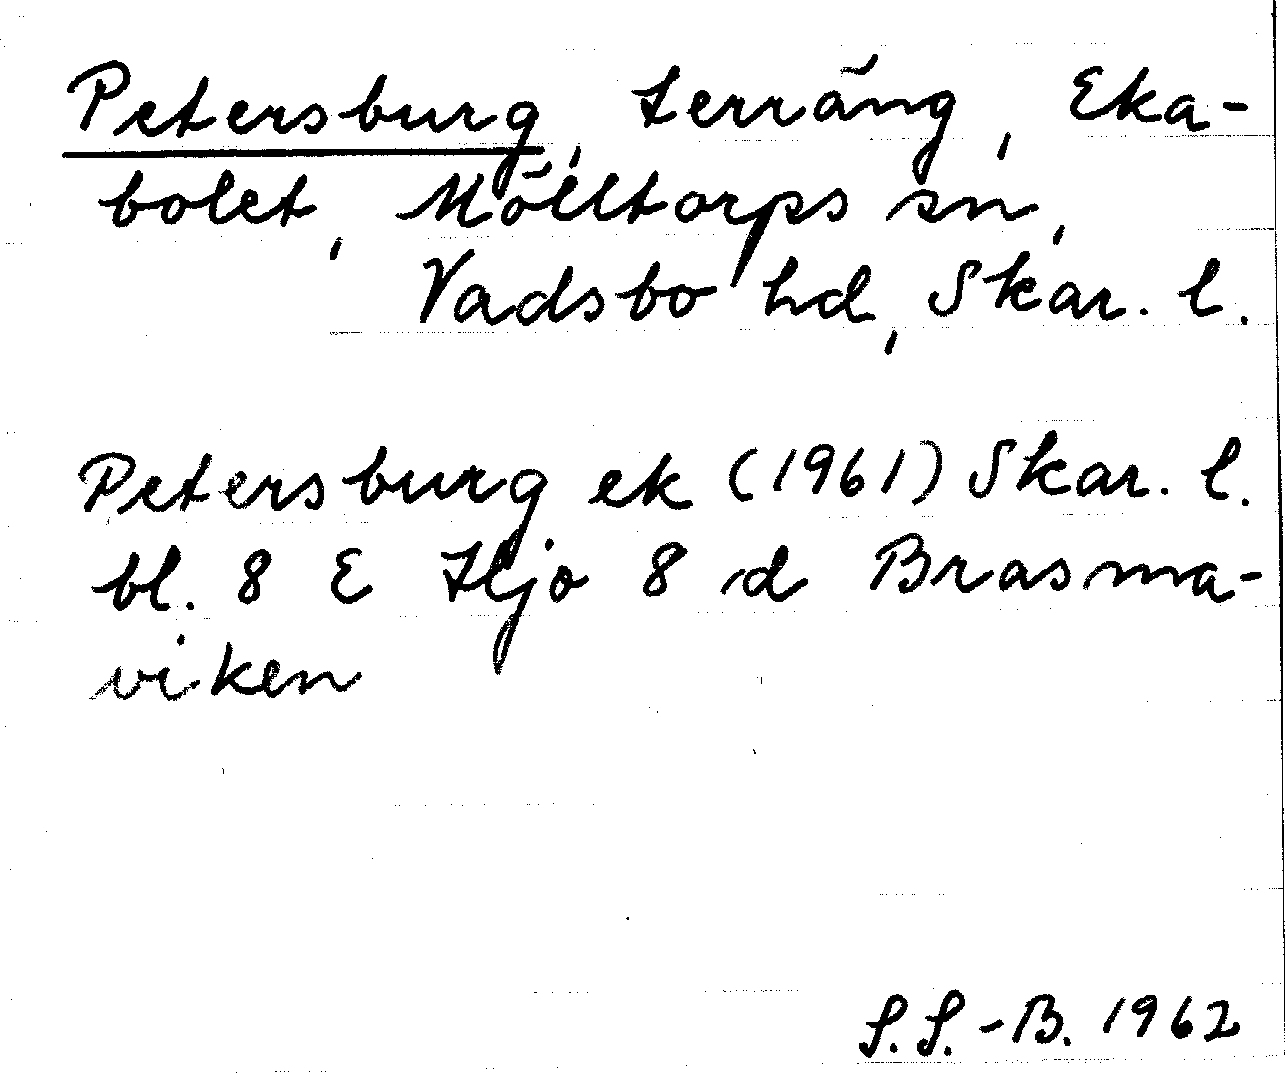 Petersburg, terräng, Eka-
bolet, Mölltorps sn,
Vadsbo hd, Skar. l.
Petersburg ek (1961) Skar. l.
bl. 8 E Hjo 8 d Brasma-
viken
S.S.-B. 1962